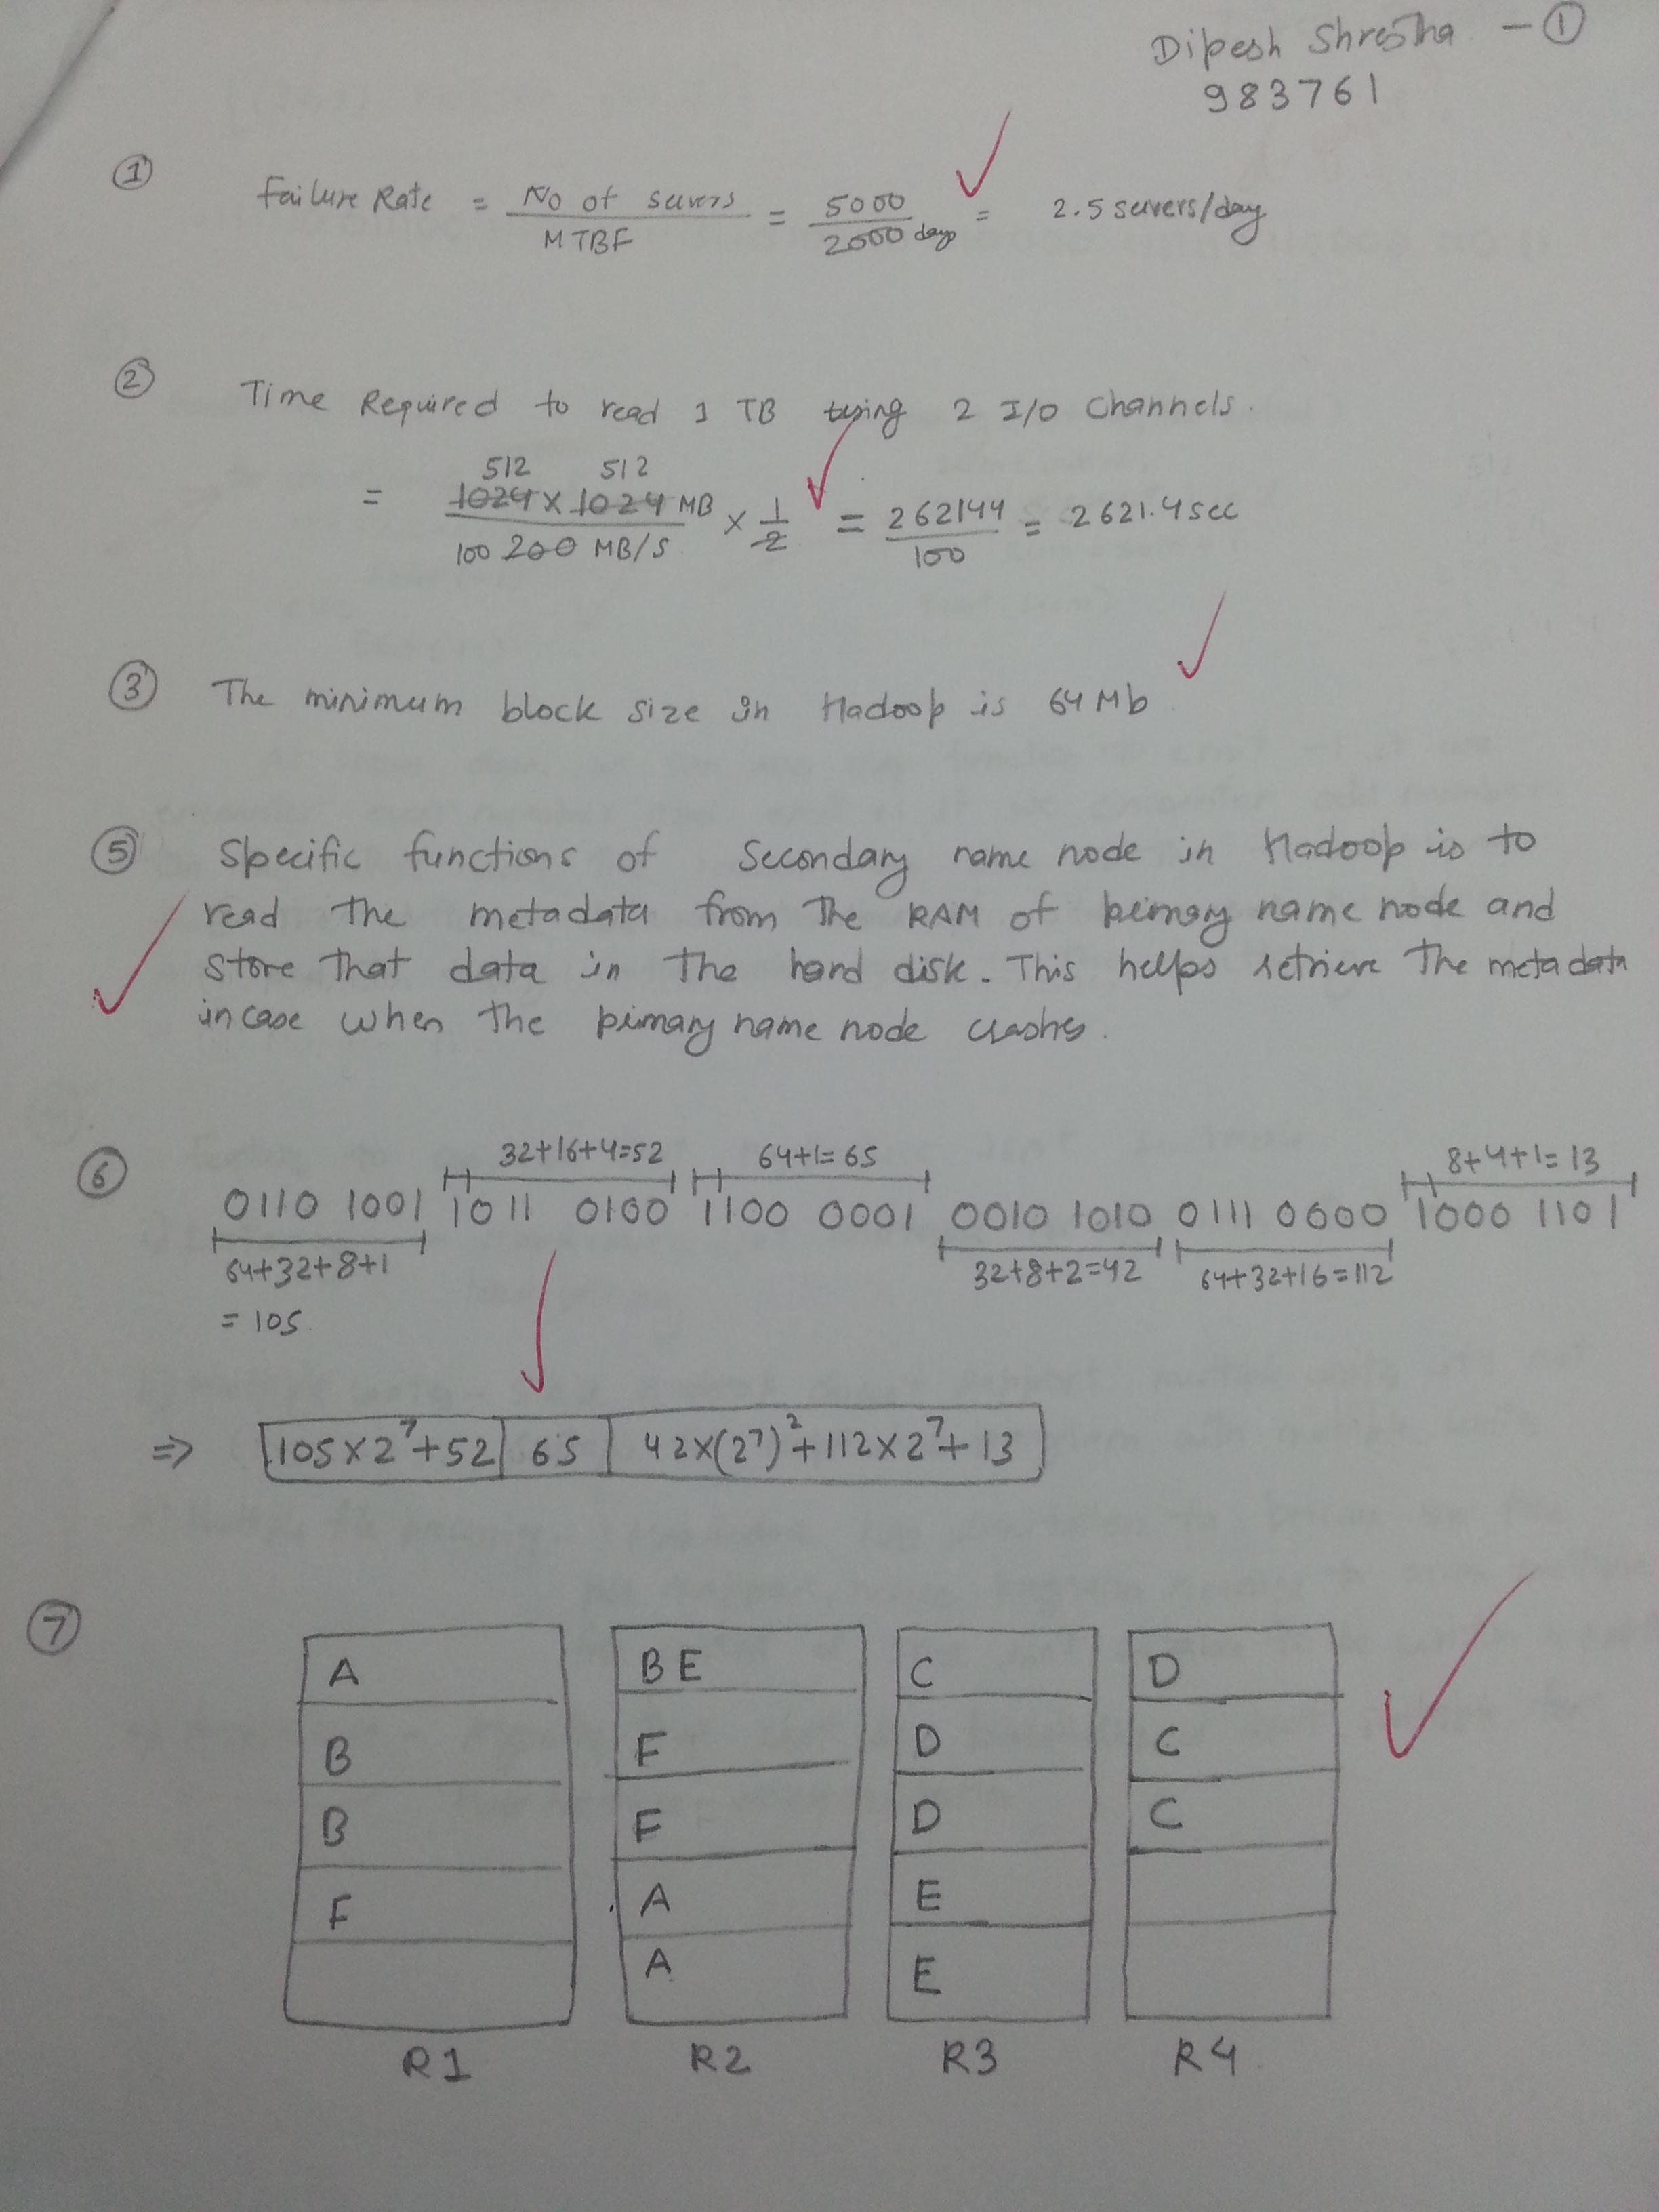 Dipesh Shrestha - ①
983761
① Failure Rate = No of servers / MTBF = 5000 / 2000 days = 2.5 servers/day
② Time Required to read 1 TB using 2 I/O channels.
512 512
= 1024 x 1024 MB / 100 200 MB/S x 1/2 = 262144 / 100 = 2621.4 sec
③ The minimum block size in Hadoop is 64 Mb
⑤ Specific functions of Secondary name node in Hadoop is to
read the metadata from the RAM of primary name node and
store that data in the hard disk. This helps retrieve the metadata
incase when the primary name node crashes.
32+16+4=52 64+1=65 8+4+1=13
⑥ 0110 1001 1011 0100 1100 0001 0010 1010 0111 0000 1000 1101
64+32+8+1 32+8+2=42 64+32+16=112
= 105
⇒ 105x2⁷+52 65 42x(2⁷)²+112x2⁷+13
⑦
A BE C D
B F D C
B F D C
F A E
A E
R1 R2 R3 R4